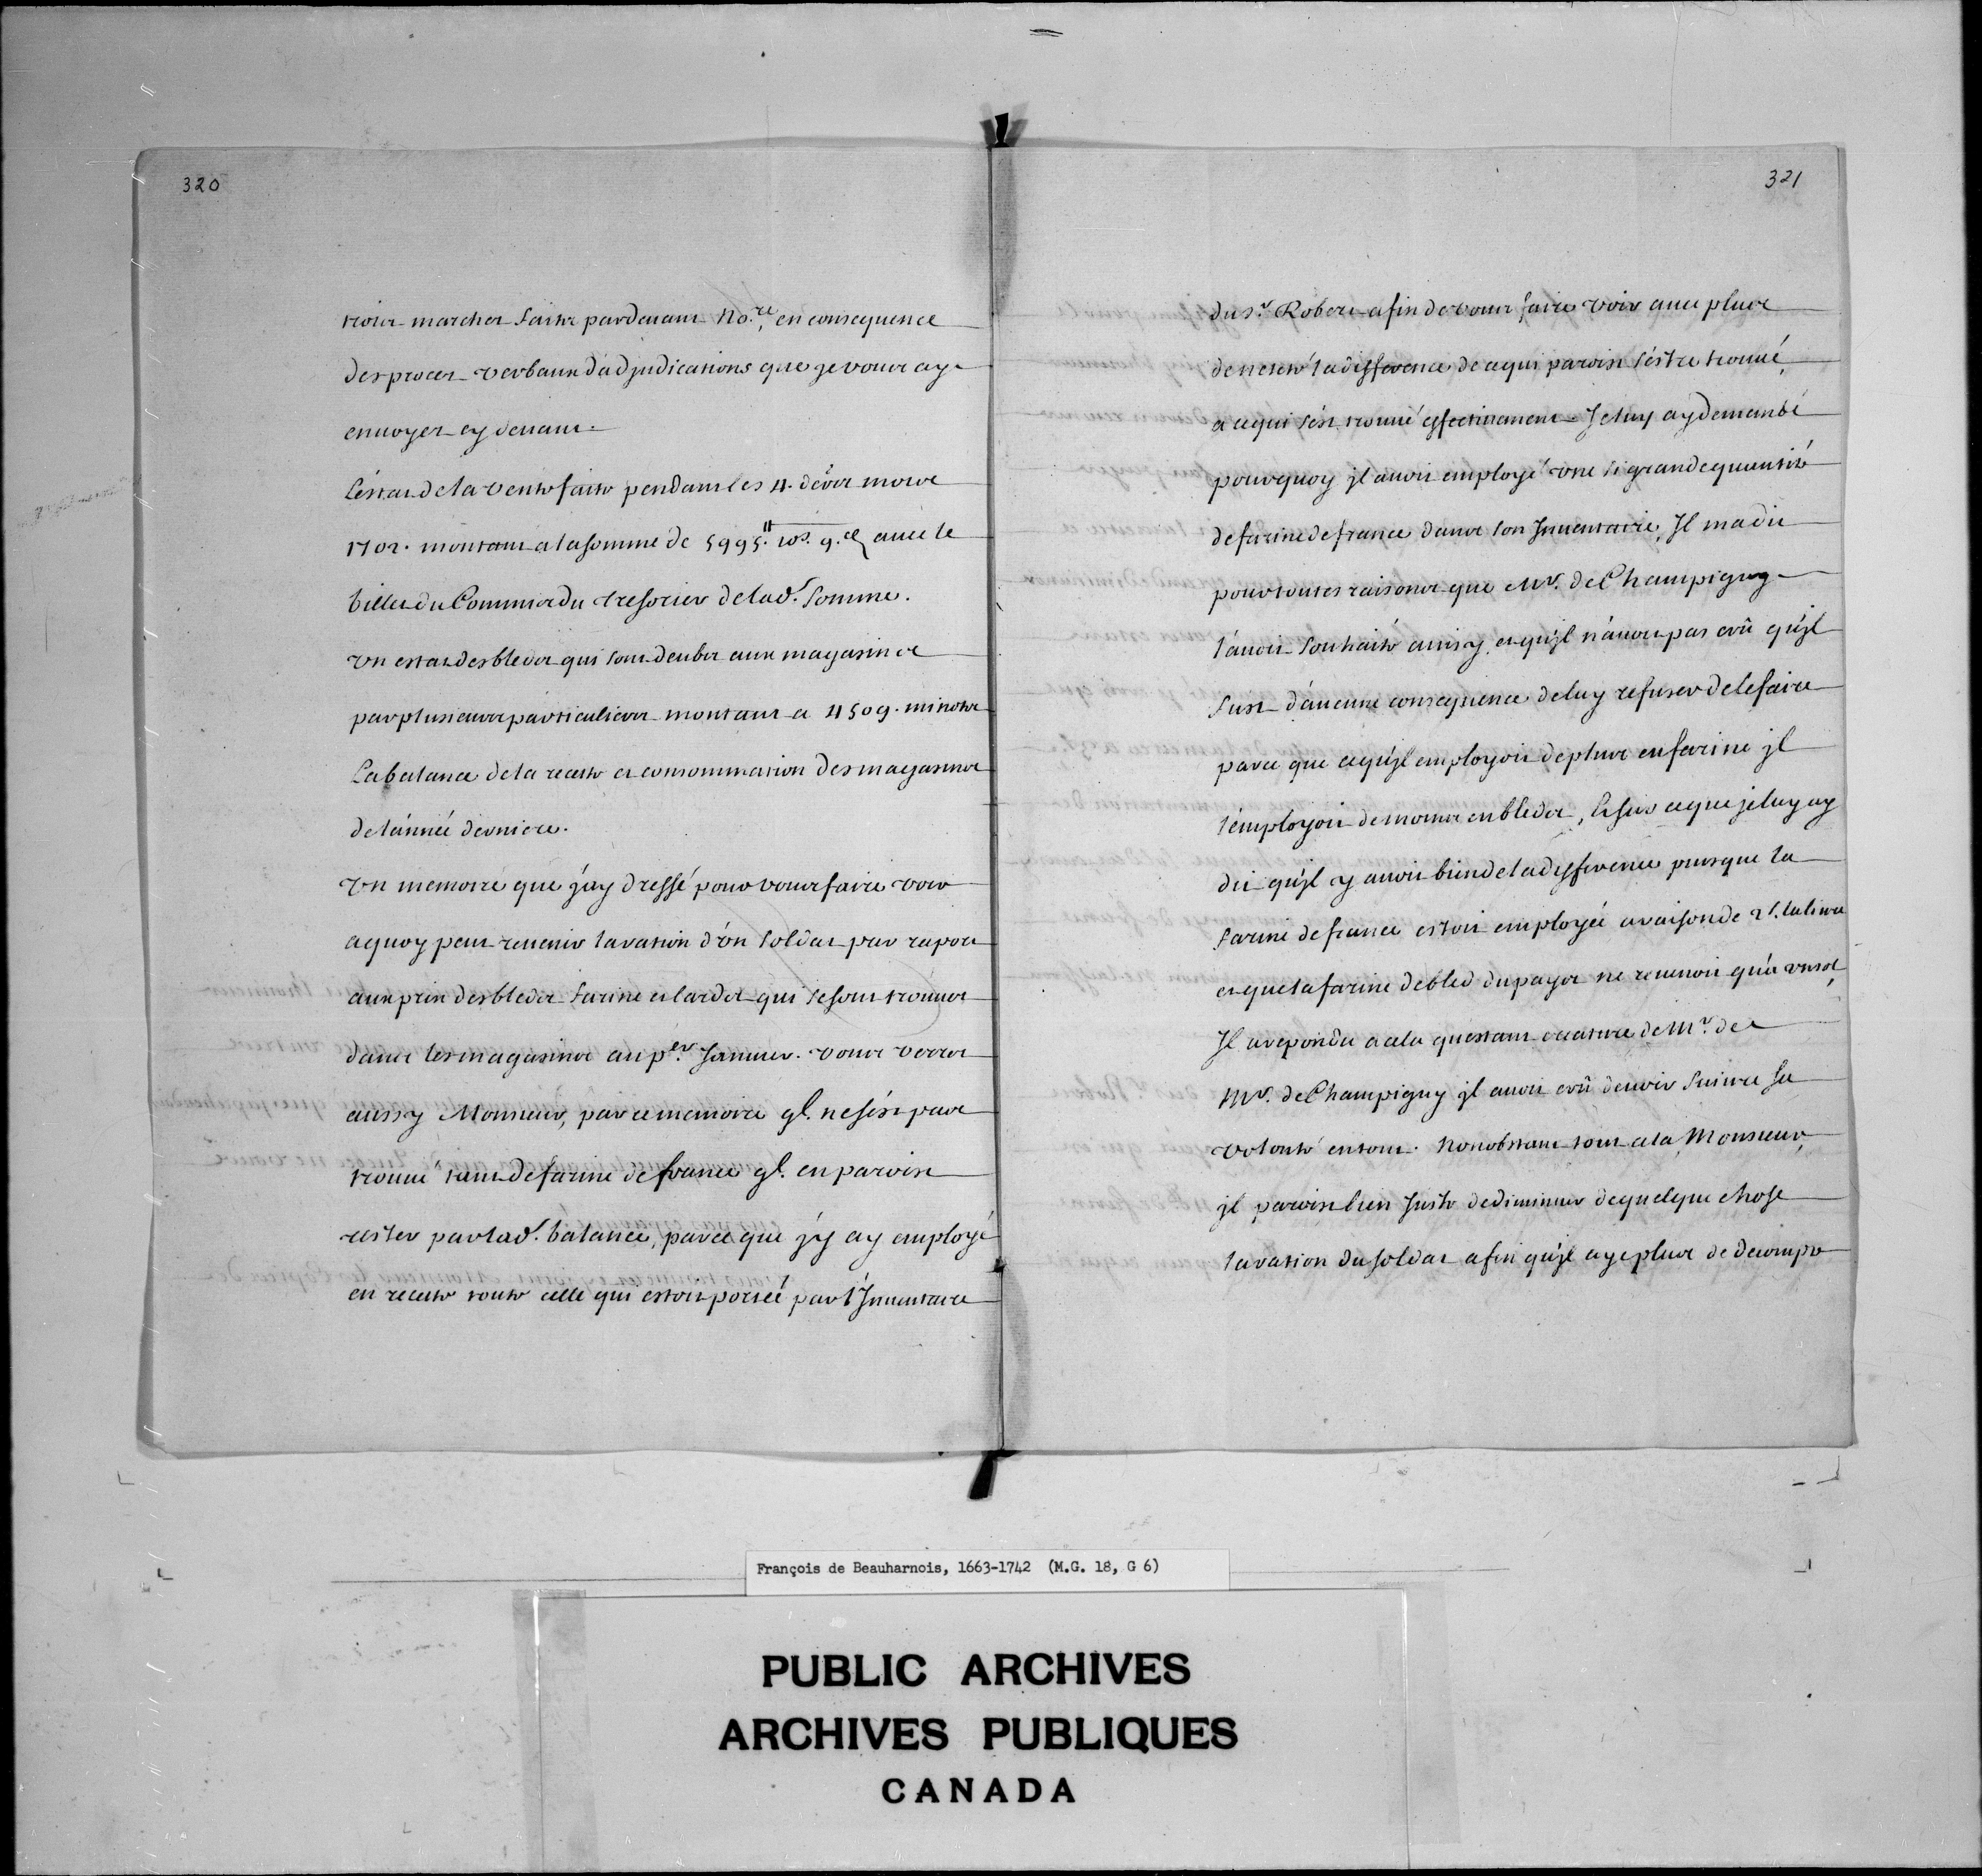 320
trois marchez faits pardevant No.re, en consequence
des procez verbaux d'adjudications que je vous ay
envoyez cy devant.
L'estat de la vente faite pendant les 4. d.ers mois
1702. montant a la somme de 5995.tt 10s. 9.d avec le
billet du Commis du tresorier de lad.e Somme.
Un estat des bleds qui sont deubs aux magasins
par plusieurs particuliers montant a 4509. minots
La balance de la recette et consommation des magasins
de l'année derniere.
Un memoire que j'ay dressé pour vous faire voir
a quoy peut revenir la ration d'un soldat par raport
aux prix des bleds farine et lards qui se sont trouvez
dans les magasins au p.er Janvier. vous verrez
aussy Monsieur, par ce memoire ql. ne s'est pas
trouvé tant de farine de france ql. en paroist
rester par lad.e balance, parce que j'y ay employé
en recette toute celle qui estoit portée par l'Inventaire
321
du s.r Robert afin de vous faire voir avec plus
de netteté la difference de ce qui paroist s'estre trouvé,
a ce qui s'est trouvé effectivement Je luy ay demandé
pourquoy jl avoit employé une si grande quantité
de farine de france dans son Inventaire, Il m'a dit
pour toutes raisons que Mr. de Champigny
l'avoit souhaité ainsy, et qu'jl n'avoit pas crû qu'jl
fust d'aucune consequence de luy refuser de le faire
parce que ce qu'jl employoit de plus en farine jl
l'employoit de moins en bleds, Et sur ce que je luy ay
dit qu'jl y avoit bien de la difference puisque la
farine de france estoit employée a raison de 2 s. la livre
et que la farine de bled du pays ne revenoit qu'a un sol,
Il a repondu a cela qu'estant creature de Mr. de
Mr. de Champigny jl avoit crû devoir suivre sa
volonté en tout. Nonobstant tout cela, Monsieur,
jl paroist bien juste de diminuer de quelque chose
la ration du soldat afin qu'jl aye plus de decompte
François de Beauharnois, 1663-1742 (M.G. 18, G 6)
PUBLIC ARCHIVES
ARCHIVES PUBLIQUES
CANADA